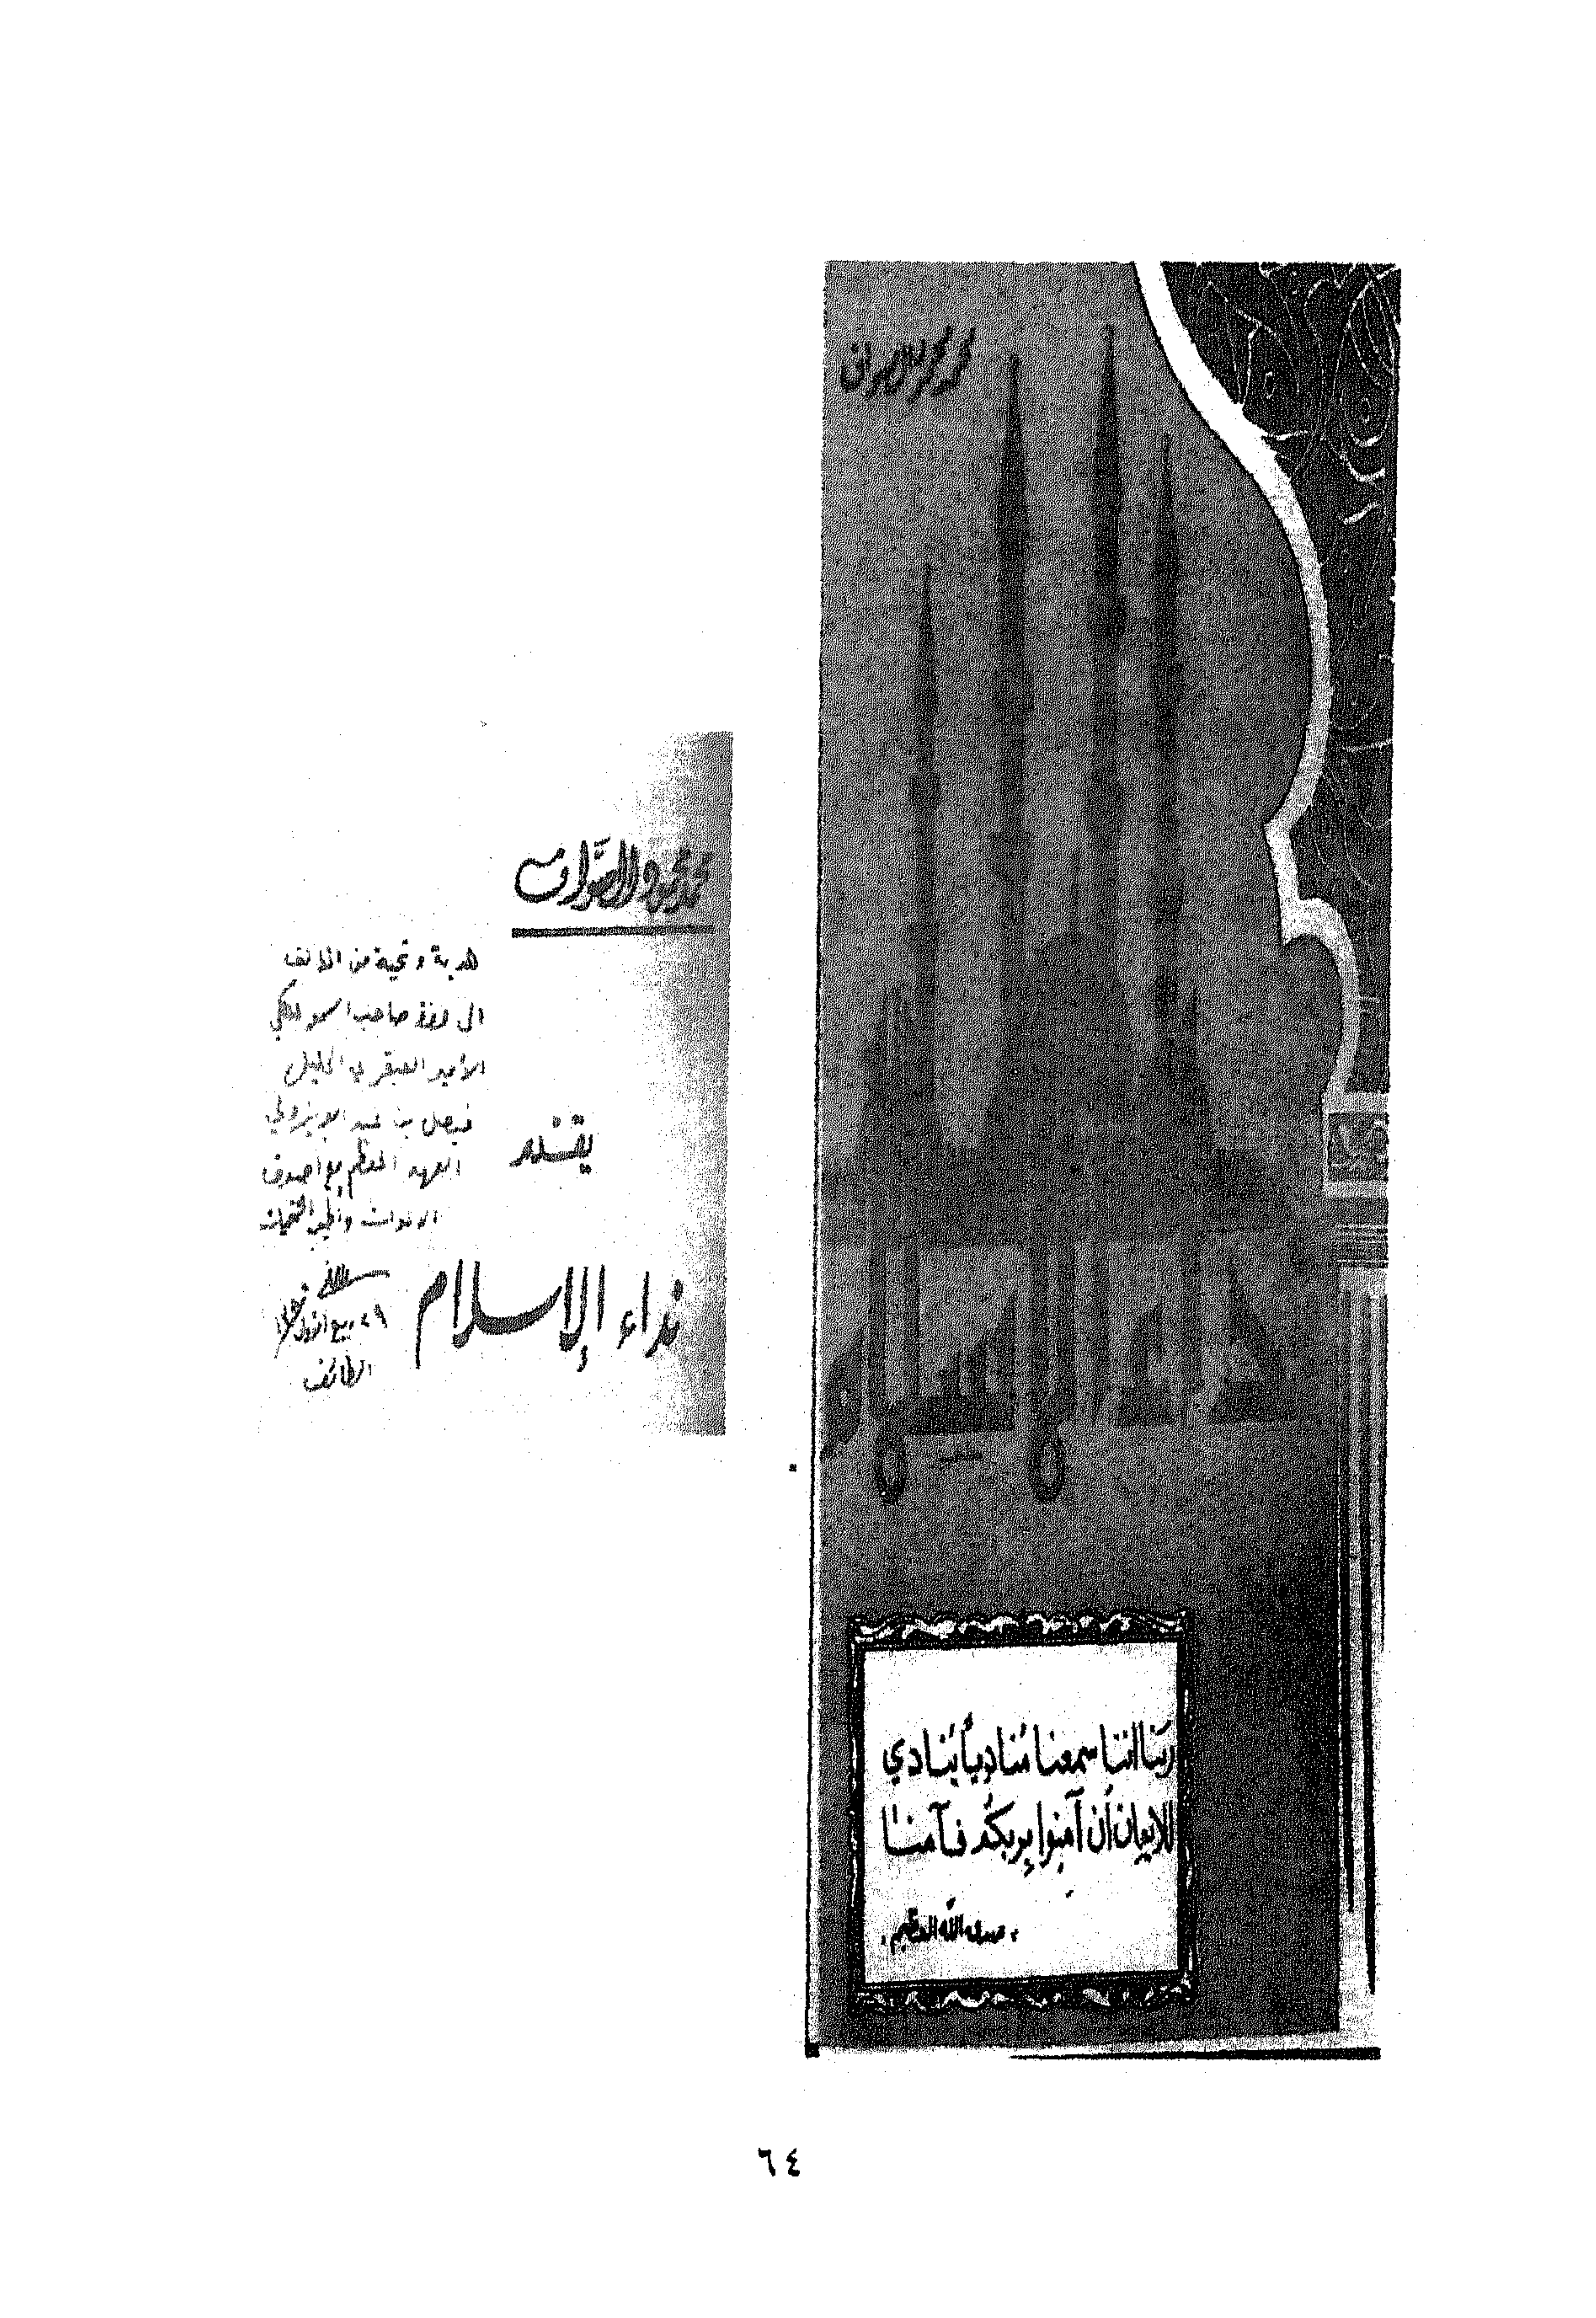 محمد محمود الصواف
ربنا إننا سمعنا مُناديأ يُنادي
للإيمان أن آمنوا بربكم فآمنا
صدق الله العظيم
محمد محمود الصواف
يقدم
نداء الإسلام
هدية وتحية من المؤلف
الى صاحب السمو الملكي
الأمير العبقري الجليل
فيصل بن عبد العزيز ولي
العهد المعظم مع أصدق
وأطيب التحيات
ربيع الأول
الطائف
٦٤